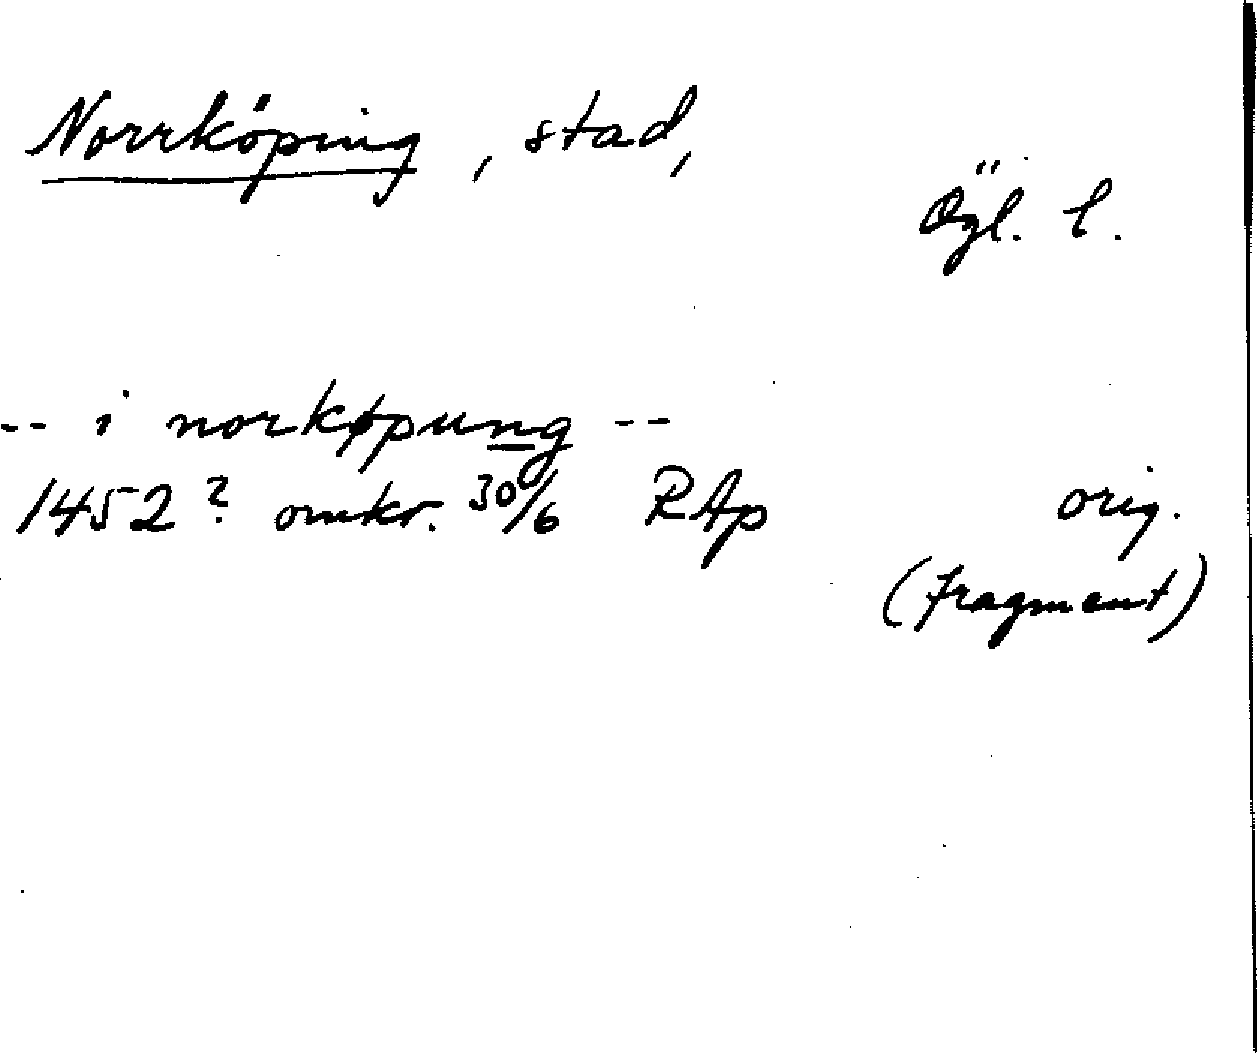 Norrköping, stad,
Ögl. l.
-- i norkøpung --
1452? omkr. 30/6 RAp orig.
(fragment)